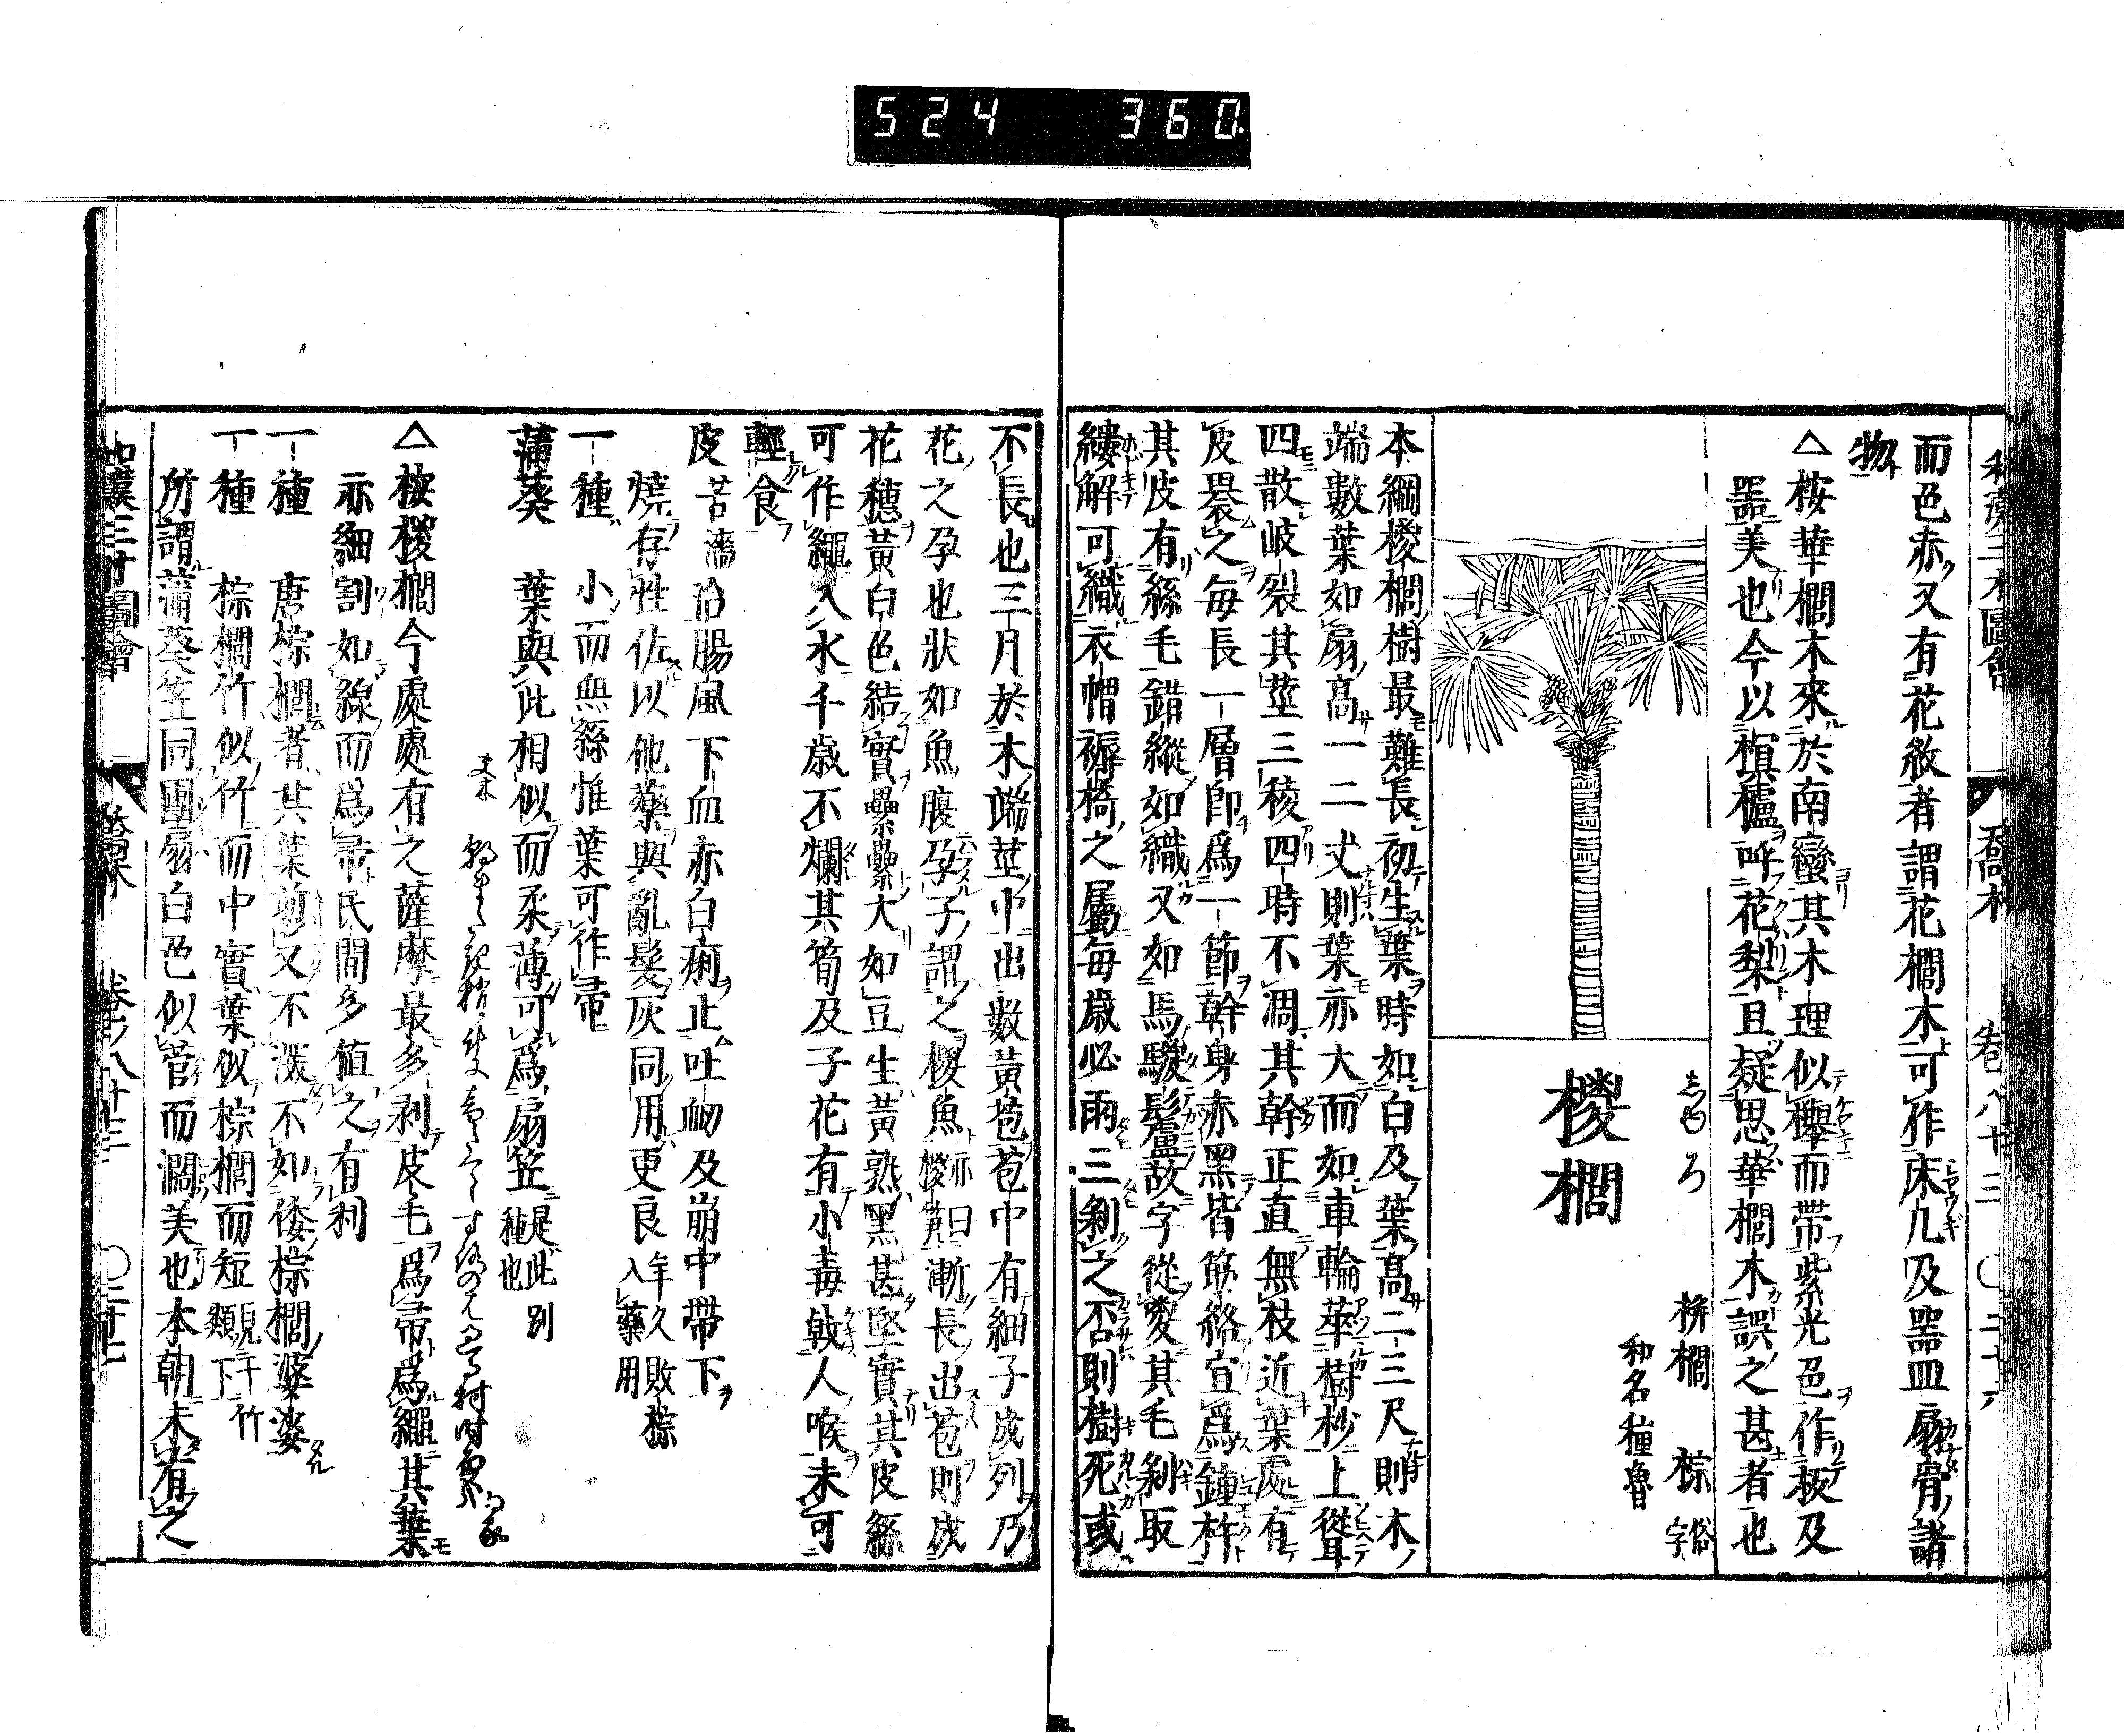 524 360
和漢三才圖會 喬木 卷八十三 ○三十六
而色赤又有花紋者謂花櫚木可作床几及器皿扇骨諸
物
△桉華櫚木來於南蠻其木理似欅而帶紫光色作板及
器美也今以榠樝呼花梨且疑思華櫚木誤之甚者也
しゆろ
栟櫚 棕俗字
和名種魯
椶櫚
本綱椶櫚樹最難長初生葉時如白及葉高二三尺則木
端數葉如扇高一二丈則葉亦大而如車輪萃樹杪上聳
四散岐裂其莖三稜四時不凋其幹正直無枝近葉處有
皮褁之每長一層卽爲一節幹身赤黑皆筋絡宜爲鐘杵
其皮有絲毛錯縱如織又如馬騣鬛故字從㚇其毛剝取
縷解可織衣帽褥椅之屬每歲必兩三剝之否則樹死或
不長也三月於木端莖中出數黃苞苞中有細子成列乃
花之孕也狀如魚腹孕子謂之椶魚亦曰椶笋漸長出苞則成
花穗黃白色結實纍纍大如豆生黃熟黑甚堅實其皮絲
可作繩入水千歲不爛其筍及子花有小毒戟人喉未可
輕食
皮 苦濇 治腸風下血赤白痢止吐衂及崩中帶下
燒存性佐以他藥與亂髮灰同用更良年久敗棕入藥用
一種 小而無絲惟葉可作帚
蒲葵 葉與此相似而柔薄可爲扇笠是此別種也
夫木
△桉椶櫚今處處有之薩摩最多剥皮毛爲帚爲繩其葉
亦細割如線而爲帚民間多植之有利
一種 唐棕櫚者其葉剪又不潑不如倭棕櫚婆娑
一種 棕櫚竹似竹而中實葉似棕櫚而短見于竹類下
所謂蒲葵笠同團扇白色似菅而濶美也本朝未有之
和漢三才圖會 喬木 卷ノ八十三 ○三十七